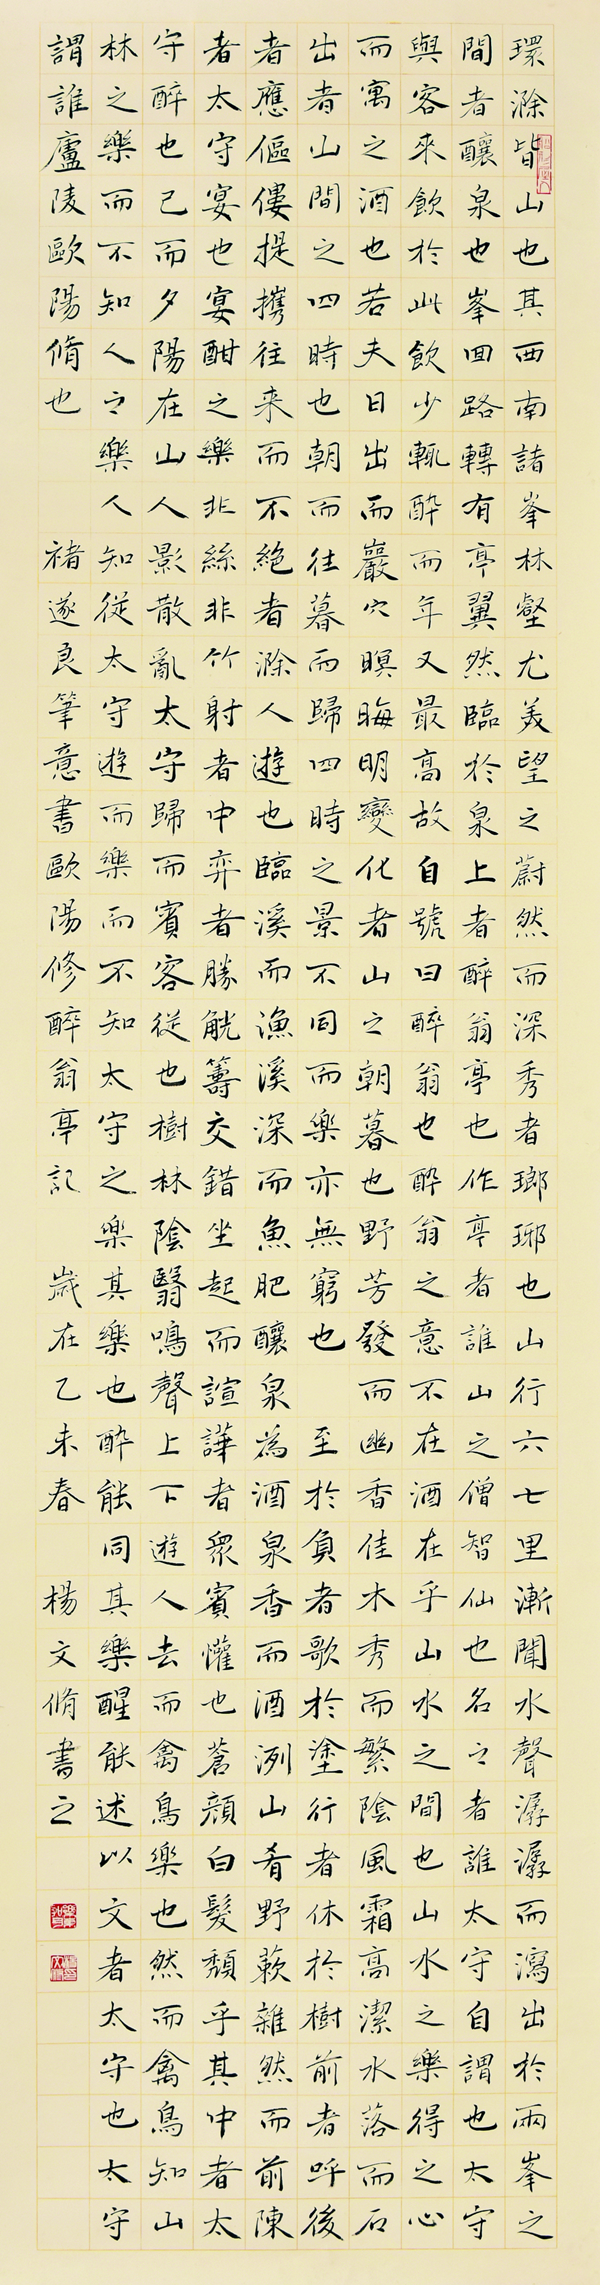 環滁皆山也其西南諸峯林壑尤美望之蔚然而深秀者瑯琊也山行六七里漸聞水聲潺潺而瀉出於兩峯之
間者釀泉也峯回路轉有亭翼然臨於泉上者醉翁亭也作亭者誰山之僧智仙也名之者誰太守自謂也太守
與客來飲於此飲少輒醉而年又最高故自號曰醉翁也醉翁之意不在酒在乎山水之間也山水之樂得之心
而寓之酒也若夫日出而巖穴暝晦明變化者山之朝暮也野芳發而幽香佳木秀而繁陰風霜高潔水落而石
出者山間之四時也朝而往暮而歸四時之景不同而樂亦無窮也 至於負者歌於塗行者休於樹前者呼後
者應傴僂提攜往来而不絕者滁人遊也臨溪而漁溪深而魚肥釀泉為酒泉香而酒洌山肴野蔌雜然而前陳
者太守宴也宴酣之樂非絲非竹射者中弈者勝觥籌交錯坐起而諠譁者眾賓懽也蒼顏白髮頹乎其中者太
守醉也已而夕陽在山人影散亂太守歸而賓客從也樹林陰翳鳴聲上下遊人去而禽鳥樂也然而禽鳥知山
林之樂而不知人之樂人知從太守遊而樂而不知太守之樂其樂也醉能同其樂醒能述以文者太守也太守
謂誰廬陵歐陽脩也 褚遂良筆意書歐陽修醉翁亭記 歲在乙未春 楊文脩書之